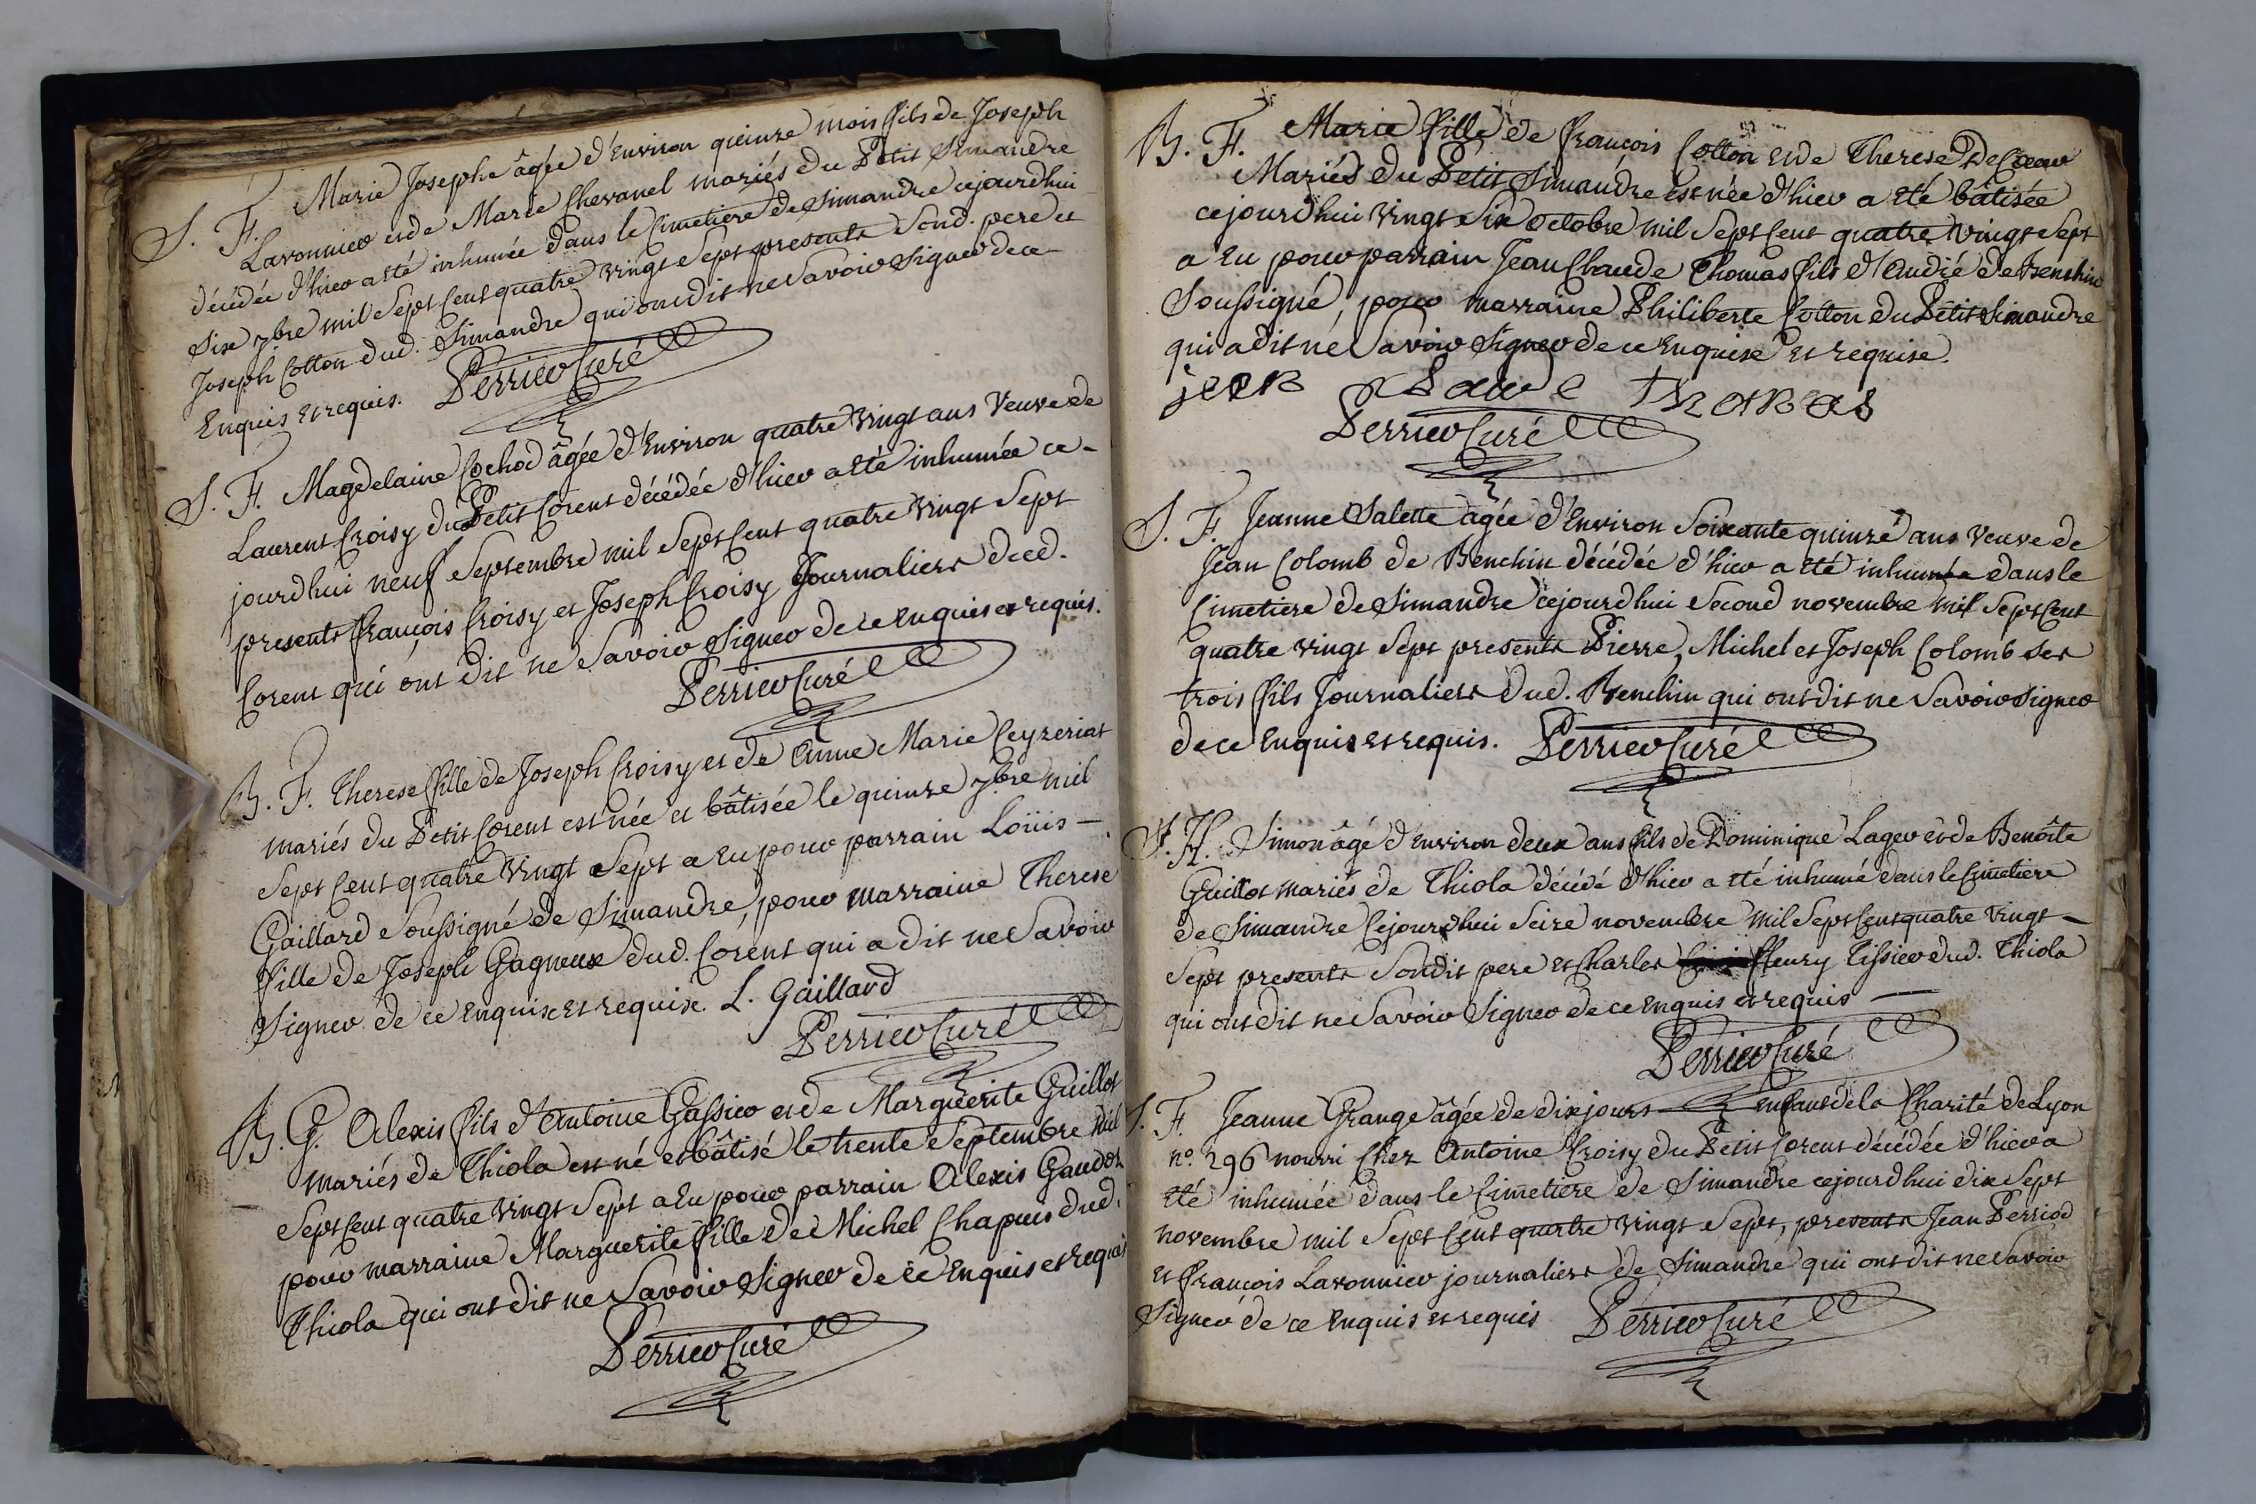 S. F. Marie Josephe âgée d'Environ quinze mois fils de Joseph
Lavonnier et de Marie Chevanel mariés du Petit Simandre
décédée d'hier a été inhumée dans le Cimetiere de Simandre cejourdhui
six 7bre mil Sept Cent quatre vingt Sept presents Sond. pere et
Joseph Cotton dud. Simandre qui ont dit ne Savoir Signer de ce
Enquis et requis. Perrier Curé
S. F. Magdelaine Cochod âgée d'Environ quatre vingt ans Veuve de
Laurent Croisy du Petit Corent décédée d'hier a été inhumée ce-
jourdhui neuf Septembre mil Sept Cent quatre vingt Sept
presents françois Croisy et Joseph Croisy Journaliers dud.
Corent qui ont dit ne Savoir Signer de ce Enquis et requis.
Perrier Curé
B. F. Therese fille de Joseph Croisy et de Anne Marie Ceyzeriat
mariés du Petit Corent est née et bâtisée le quinze 7bre mil
Sept Cent quatre vingt Sept a Eu pour parrain Loüis
Gaillard Soussigné de Simandre, pour marraine Therese
fille de Joseph Gagneux dud. Corent qui a dit ne Savoir
Signer de ce Enquise et requise. L. Gaillard
Perrier Curé
B. G. Alexis fils d'Antoine Gassier et de Marguerite Guillot
mariés de Thiola est né et bâtisé le trente Septembre mil
Sept Cent quatre vingt Sept a Eu pour parrain Alexis Gaudet
pour marraine Marguerite fille de Michel Chapuis dud.
Thiola qui ont dit ne Savoir Signer de ce Enquis et requis
Perrier Curé
B. F. Marie fille de françois Cotton et de Therese
Mariés du Petit Simandre est née d'hier a été bâtisée
cejourdhui vingt Six octobre mil Sept Cent quatre vingt Sept
a Eu pour parrain Jean Claude Thomas fils d'André de Benchin
Soussigné, pour marraine Philiberte Cotton du Petit Simandre
qui a dit ne Savoir Signer de ce Enquise et requise.
jean Claude Thomas
Perrier Curé
S. F. Jeanne Salette agée d'Environ Soixante quinze ans Veuve de
Jean Colomb de Benchin décédée d'hier a été inhumée dans le
Cimetiere de Simandre cejourdhui Second novembre mil Sept Cent
quatre vingt Sept presents Pierre, Michel et Joseph Colomb Ses
trois fils Journaliers dud. Benchin qui ont dit ne Savoir Signer
de ce Enquis et requis. Perrier Curé
S. H. Simon âgé d'Environ deux ans fils de Dominique Lager et de Benoîte
Guillot mariés de Thiola décédé d'hier a été inhumé dans le Cimetiere
de Simandre Cejourdhui Seize novembre mil Sept Cent quatre vingt
Sept presents Sondit pere et Charles fleury Tissier dud. Thiola
qui ont dit ne Savoir Signer de ce Enquis et requis
Perrier Curé
S. F. Jeanne Grange âgée de dix jours enfant de la Charité de Lyon
n°. 296 nourri Chez Antoine Croisy du Petit Corent décédée d'hier a
été inhumée dans le Cimetiere de Simandre cejourdhui dix Sept
novembre mil Sept Cent quatre vingt Sept, presents Jean Perriod
et françois Lavonnier journaliers de Simandre qui ont dit ne Savoir
Signer de ce Enquis et requis Perrier Curé